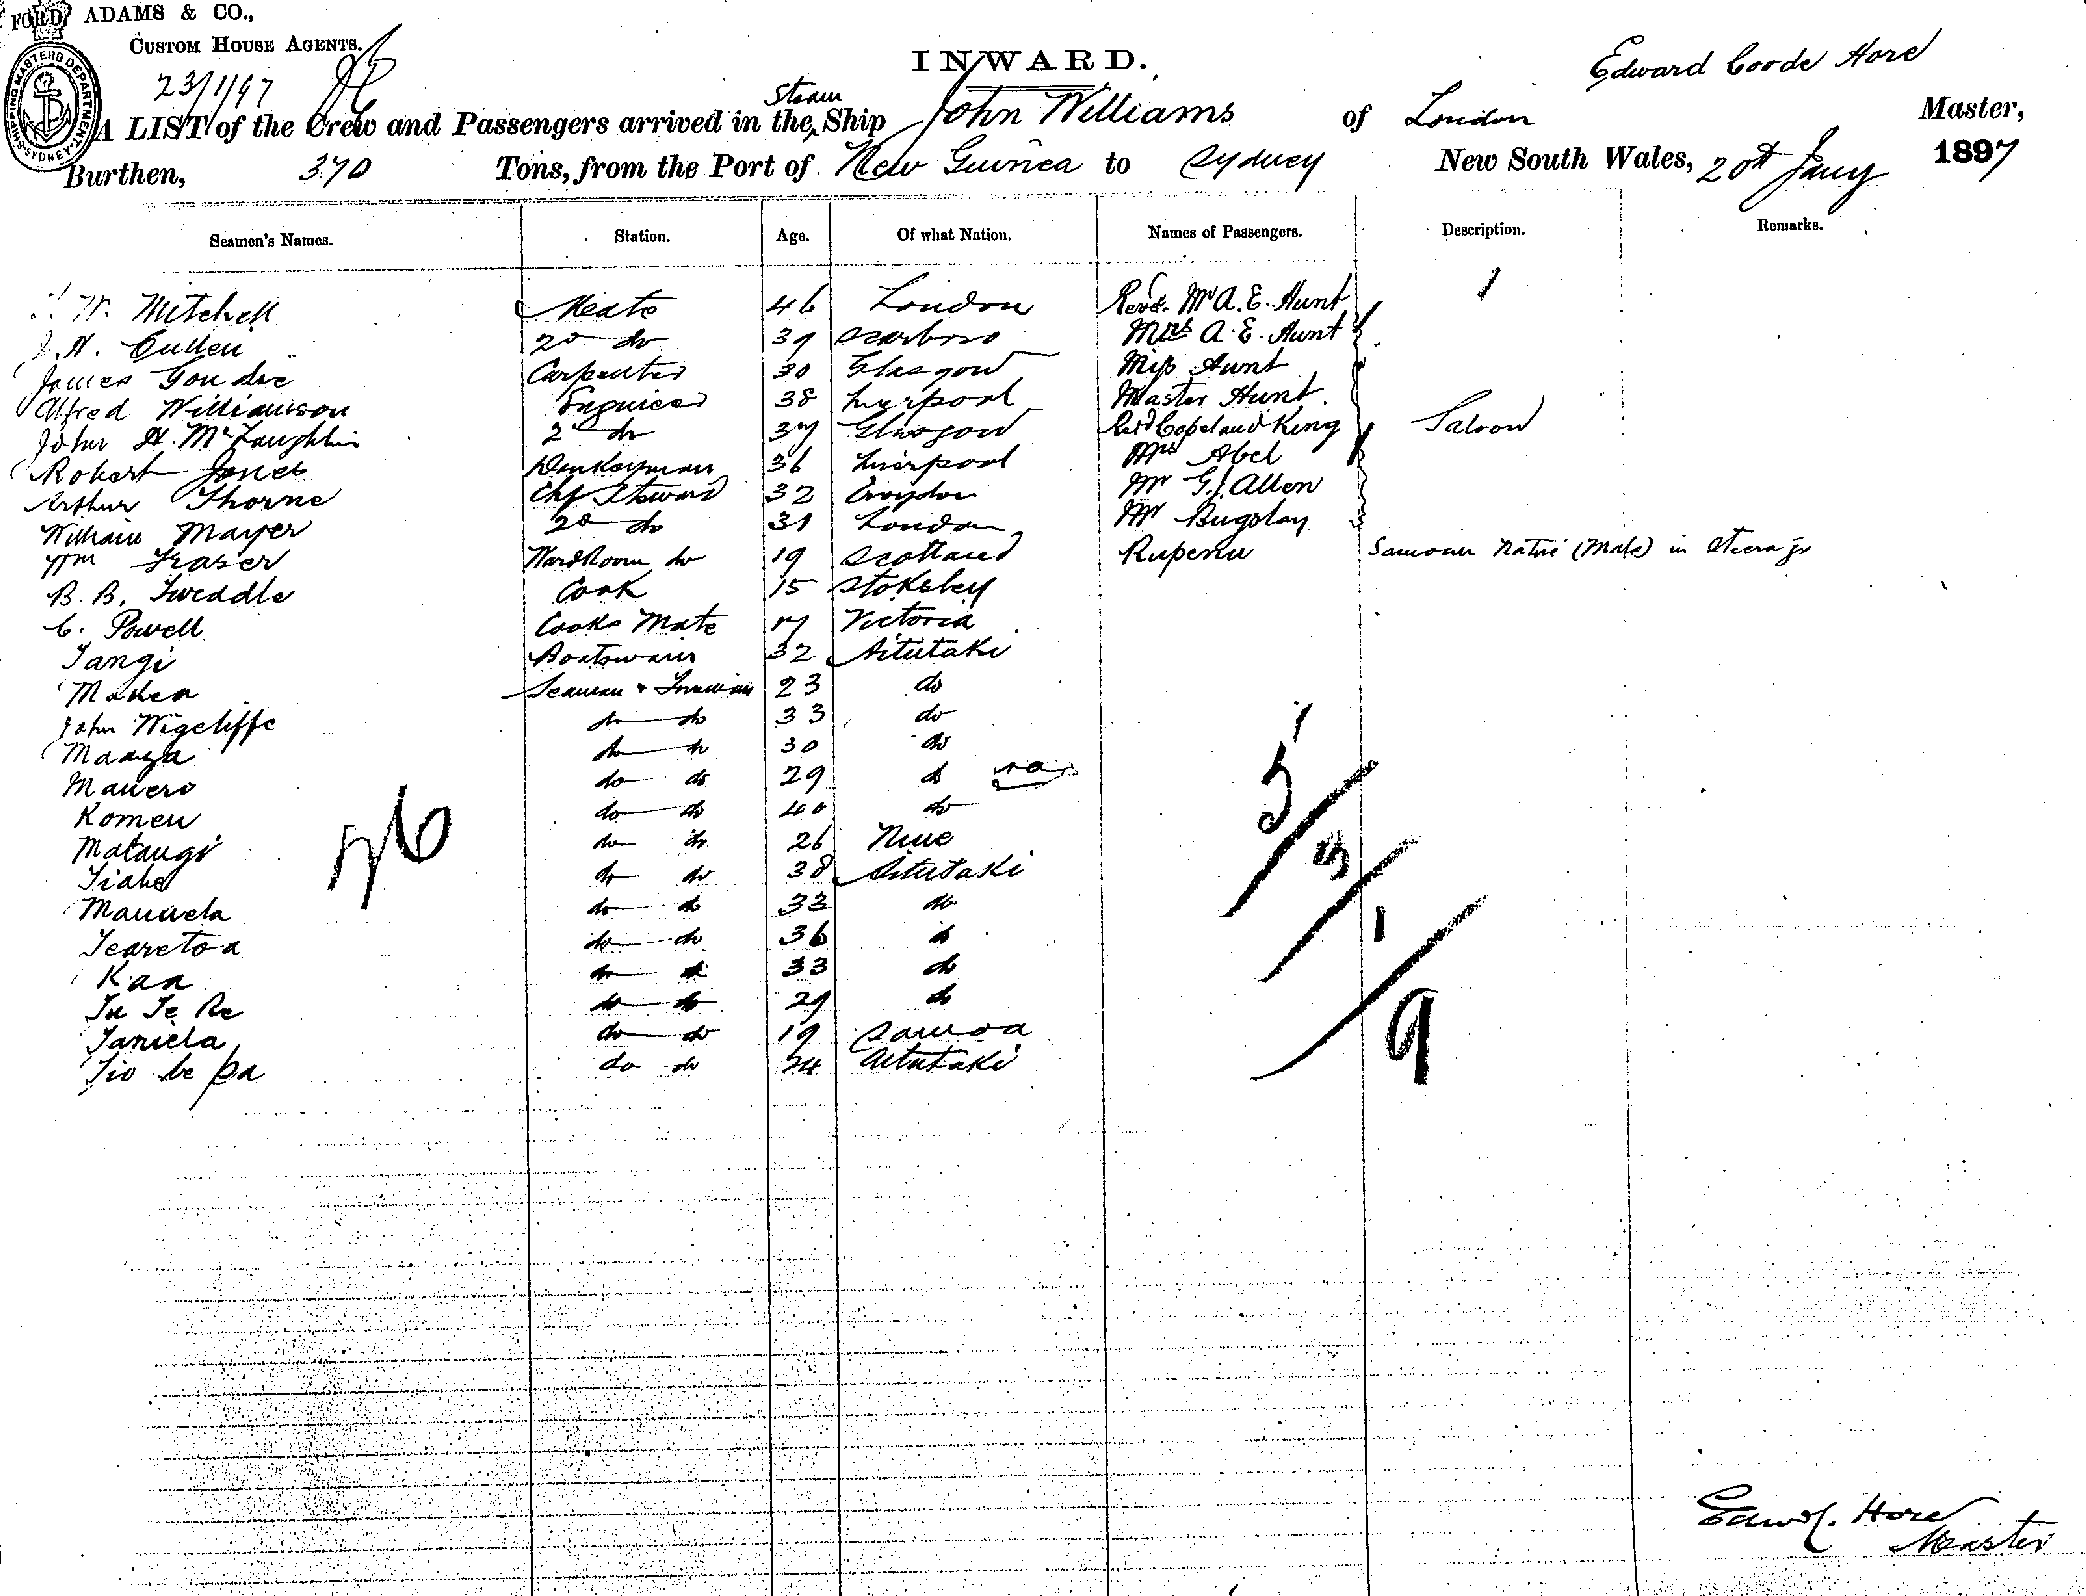 FORD, ADAMS & CO.,
CUSTOM HOUSE AGENTS.
SHIPPING MASTERS DEPARTMENT SYDNEY
23/1/97
INWARD.
Edward Coode Hore
A LIST of the Crew and Passengers arrived in the Steam Ship John Williams of London Master,
Burthen, 370 Tons, from the Port of New Guinea to Sydney New South Wales, 20th Jany 1897
Seamen's Names. Station. Age. Of what Nation. Names of Passengers. Description. Remarks.
W. Mitchell Mate 46 London Revd. Mr A. E. Hunt
J. H. Cullen 2nd do 39 Scarboro Mrs A. E. Hunt
James Goudie Carpenter 30 Glasgow Miss Hunt
Alfred Williamson Engineer 38 Liverpool Master Hunt
John H. McLaughlin 2nd do 37 Glasgow Revd Copeland King Saloon
Robert Jones Donkeyman 36 Liverpool Mrs Abel
Arthur Thorne Chf Steward 32 Croydon Mr G. J. Allen
William Mayer 2nd do 31 London Mr Bugslay
Wm Fraser WardRoom do 19 Scotland Rupenu Samoan Native (Male) in Steerage
B. B. Tweddle Cook 15 Stokesley
C. Powell Cooks Mate 17 Victoria
Tangi Boatswain 32 Aitutaki
Maken Seaman & Fireman 23 do
John Wigcliffe do do 33 do
Maaya do do 30 do
Manero do do 29 do
Komeu do do 40 do
Matangi do do 26 Niue
Tiake do do 38 Aitutaki
Manuela do do 33 do
Tearetoa do do 36 do
Kaa do do 33 do
Tu Te Re do do 29 do
Taniela do do 19 Samoa
Tio be pa do do 24 Aitutaki
26
5
3
1
9
Edwd C. Hore
Master